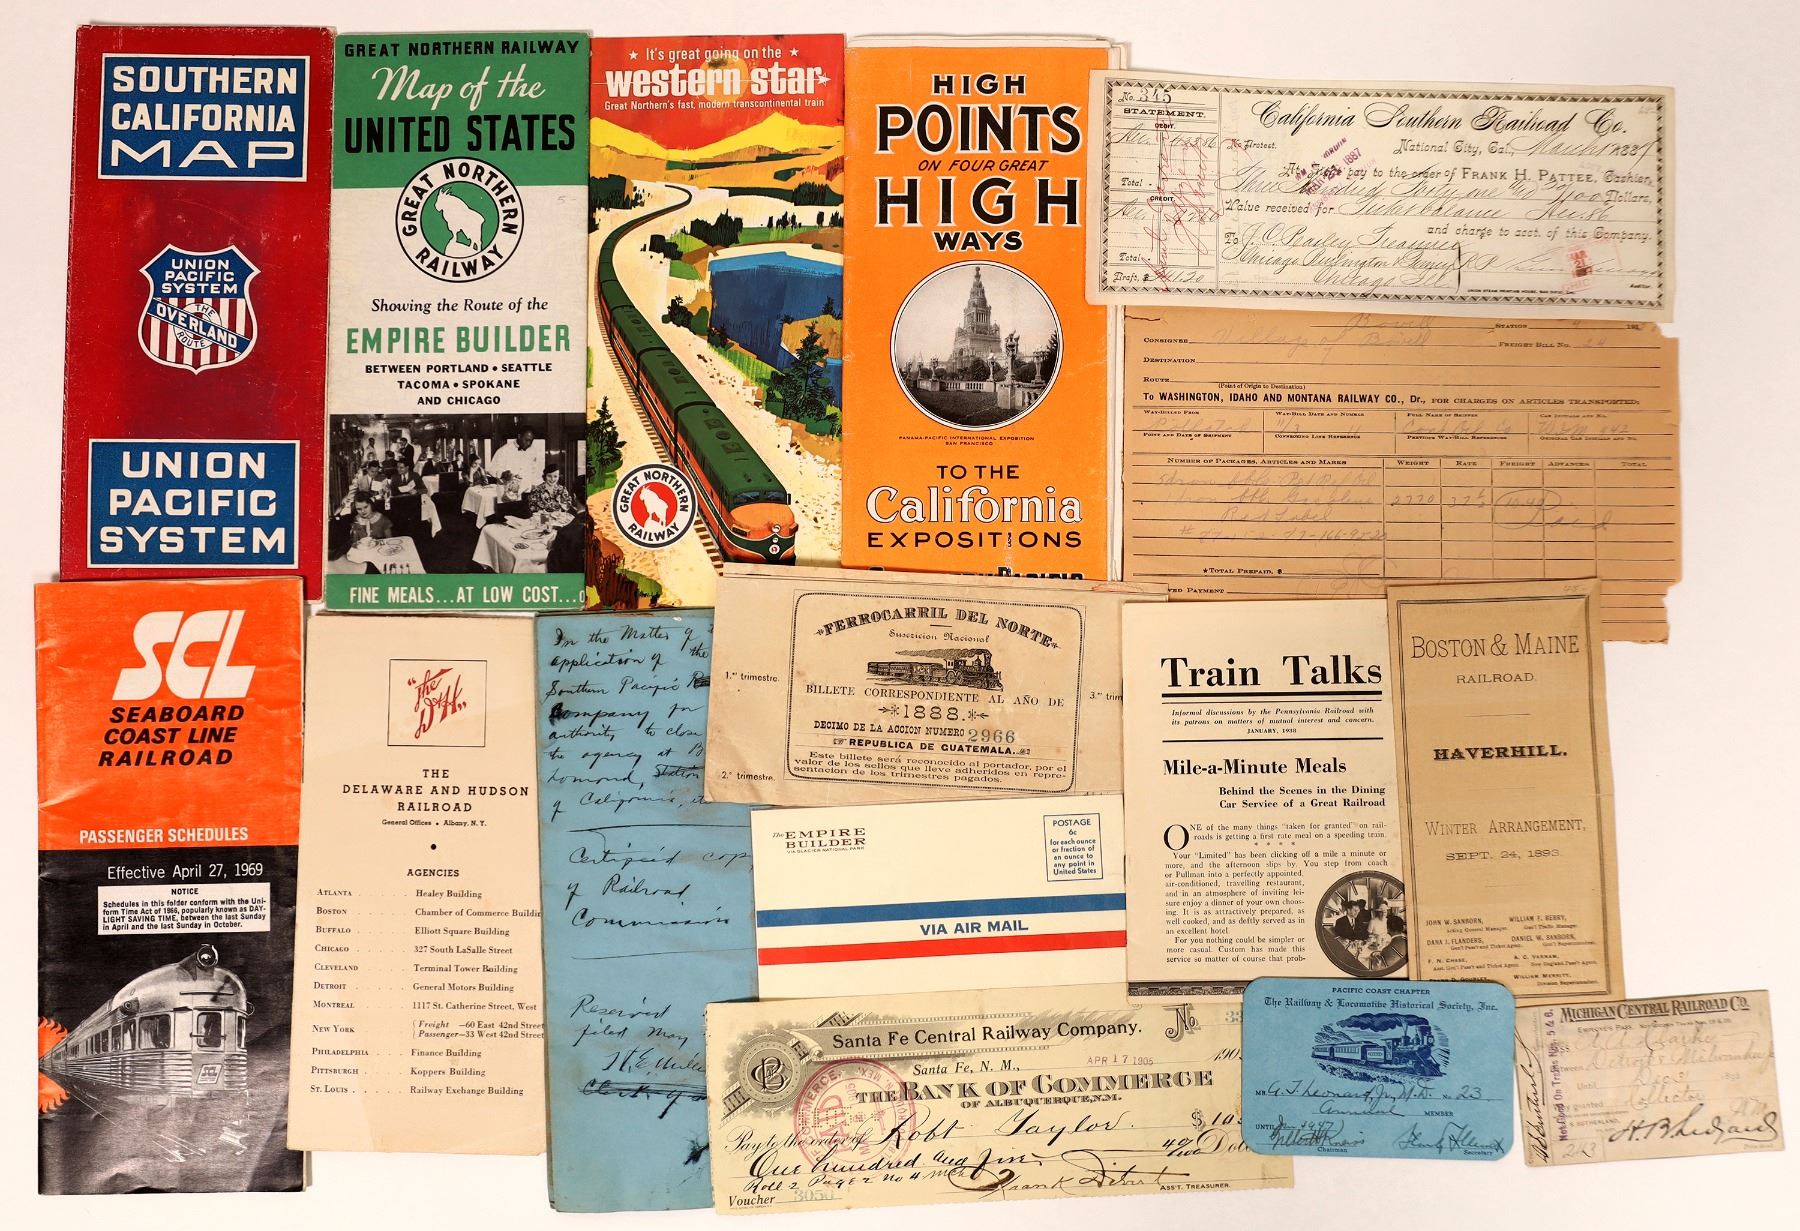 SOUTHERN
CALIFORNIA
MAP
UNION
PACIFIC
SYSTEM
THE
OVERLAND
ROUTE
UNION
PACIFIC
SYSTEM
GREAT NORTHERN RAILWAY
Map of the
UNITED STATES
GREAT NORTHERN
RAILWAY
5-
Showing the Route of the
EMPIRE BUILDER
BETWEEN PORTLAND • SEATTLE
TACOMA • SPOKANE
AND CHICAGO
FINE MEALS...AT LOW COST...
★ It's great going on the ★
western star
Great Northern's fast, modern transcontinental train
GREAT NORTHERN
RAILWAY
HIGH
POINTS
ON FOUR GREAT
HIGH
WAYS
PANAMA-PACIFIC INTERNATIONAL EXPOSITION
SAN FRANCISCO
TO THE
California
EXPOSITIONS
No. 345
STATEMENT.
DEBIT.
Total
CREDIT.
Total
Draft, $
California Southern Railroad Co.
No Protest.
National City, Cal., March 1887
At Sight pay to the order of FRANK H. PATTEE, Cashier,
Three Hundred Forty one and 30/100 Dollars,
Value received for Ticket balance
and charge to acct. of this Company.
To
Treasurer
Chicago Burlington &
Chicago Ill.
Auditor.
Bovill STATION 191
CONSIGNEE Village of Bovill FREIGHT BILL NO. 24
DESTINATION
ROUTE
(Point of Origin to Destination)
To WASHINGTON, IDAHO AND MONTANA RAILWAY CO., Dr., FOR CHARGES ON ARTICLES TRANSPORTED:
WAY-BILLED FROM WAY-BILL DATE AND NUMBER FULL NAME OF SHIPPER CAR INITIALS AND NO.
POINT AND DATE OF SHIPMENT CONNECTING LINE REFERENCE PREVIOUS WAY-BILL REFERENCES ORIGINAL CAR INITIALS AND NO.
NUMBER OF PACKAGES, ARTICLES AND MARKS WEIGHT RATE FREIGHT ADVANCES TOTAL
Gasoline 2770
Red Label
★TOTAL PREPAID, $
PAYMENT
SCL
SEABOARD
COAST LINE
RAILROAD
PASSENGER SCHEDULES
Effective April 27, 1969
NOTICE
Schedules in this folder conform with the Uni-
form Time Act of 1966, popularly known as DAY-
LIGHT SAVING TIME, between the last Sunday
in April and the last Sunday in October.
SCL
"The
D&H"
THE
DELAWARE AND HUDSON
RAILROAD
General Offices • Albany, N. Y.
•
AGENCIES
ATLANTA . . . . Healey Building
BOSTON . . . . Chamber of Commerce Buildin
BUFFALO . . . . Elliott Square Building
CHICAGO . . . . 327 South LaSalle Street
CLEVELAND . . . . Terminal Tower Building
DETROIT . . . . General Motors Building
MONTREAL . . . . 1117 St. Catherine Street, West
NEW YORK . . . . Freight —60 East 42nd Street
Passenger—33 West 42nd Street
PHILADELPHIA . . . . Finance Building
PITTSBURGH . . . . Koppers Building
ST. LOUIS . . . . Railway Exchange Building
In the Matter of
application of the
Southern Pacific
Company for
authority to close
the agency at B
Lomond, Station
of California, etc
Certified cop
of Railroad
Commission
Received
filed May
H. E.
Clerk of
FERROCARRIL DEL NORTE
Suscricion Nacional
BILLETE CORRESPONDIENTE AL AÑO DE
1888.
DECIMO DE LA ACCION NUMERO 2966
REPUBLICA DE GUATEMALA.
Este billete será reconocido al portador, por el
valor de los sellos que lleve adheridos en repre-
sentacion de los trimestres pagados.
1.er trimestre.
2.° trimestre.
3.er trim
The EMPIRE
BUILDER
VIA GLACIER NATIONAL PARK
POSTAGE
6c
for each ounce
or fraction of
an ounce to
any point in
United States
VIA AIR MAIL
Train Talks
Informal discussions by the Pennsylvania Railroad with
its patrons on matters of mutual interest and concern.
JANUARY, 1938
Mile-a-Minute Meals
Behind the Scenes in the Dining
Car Service of a Great Railroad
ONE of the many things "taken for granted" on rail-
roads is getting a first rate meal on a speeding train.
* * * *
Your "Limited" has been clicking off a mile a minute or
more, and the afternoon slips by. You step from coach
or Pullman into a perfectly appointed,
air-conditioned, travelling restaurant,
and in an atmosphere of inviting lei-
sure enjoy a dinner of your own choos-
ing. It is as attractively prepared, as
well cooked, and as deftly served as in
an excellent hotel.
For you nothing could be simpler or
more casual. Custom has made this
service so matter of course that prob-
BOSTON & MAINE
RAILROAD.
HAVERHILL.
WINTER ARRANGEMENT,
SEPT. 24, 1893.
JOHN W. SANBORN, WILLIAM F. BERRY,
Acting General Manager. Gen'l Traffic Manager.
DANA J. FLANDERS, DANIEL W. SANBORN,
Gen'l Pass'r and Ticket Agent. Gen'l Superintendent.
F. N. CHASE, A. C. VARNAM,
Asst. Gen'l Pass'r and Ticket Agent. New England Pass'r Agent.
WILLIAM MERRITT,
Division Superintendent.
Santa Fe Central Railway Company. No.
Santa Fe, N. M., APR 17 1905 190
THE BANK OF COMMERCE
OF ALBUQUERQUE, N.M.
Pay to the order of Robt Taylor $
One hundred and five 40/100 Doll
Roll 2 Page 2 No 4
Voucher 3050
ASS'T. TREASURER.
PAID
PACIFIC COAST CHAPTER
The Railway & Locomotive Historical Society, Inc.
MR. G. T. Leonard Jr. M.D. No. 23
Annual MEMBER
UNTIL Jan 1947
Chairman Secretary
MICHIGAN CENTRAL RAILROAD CO.
EMPLOYE'S PASS.
Clarke
Between Detroit & Milwaukee
Until Dec 31
Collector
Not Good On Trains Nos. 5 & 6.
H. B. Ledyard